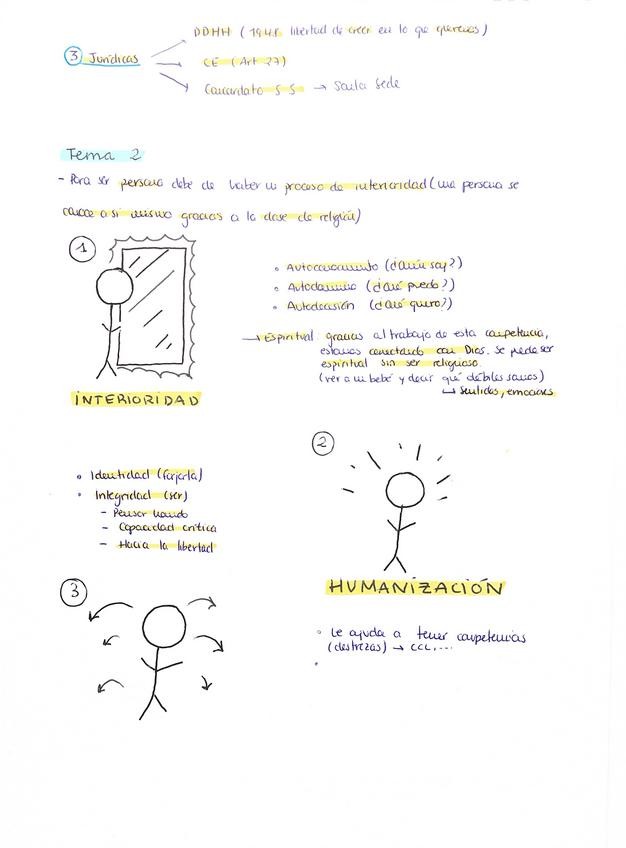 DDHH (1948 libertad de creer en lo que queremos)
③ Jurídicas
CE (Art 27)
Concordato SS → Santa Sede
Tema 2
- Para ser persona debe de haber un proceso de interioridad (una persona se
conoce a si mismo gracias a la clase de religión)
①
• Autoconocimiento (¿Quién soy?)
• Autodominio (¿Qué puedo?)
• Autodecisión (¿Qué quiero?)
→ Espiritual: gracias al trabajo de esta competencia,
estamos conectando con Dios. Se puede ser
espiritual sin ser religioso.
(ver a un bebé y decir qué débiles somos)
↳ Sentidos, emociones
INTERIORIDAD
②
• Identidad (forjarla)
• Integridad (ser)
- Pensar hondo
- Capacidad crítica
- Hacia la libertad
HUMANIZACIÓN
③
• Le ayuda a tener competencias
(destrezas) → CCL,...